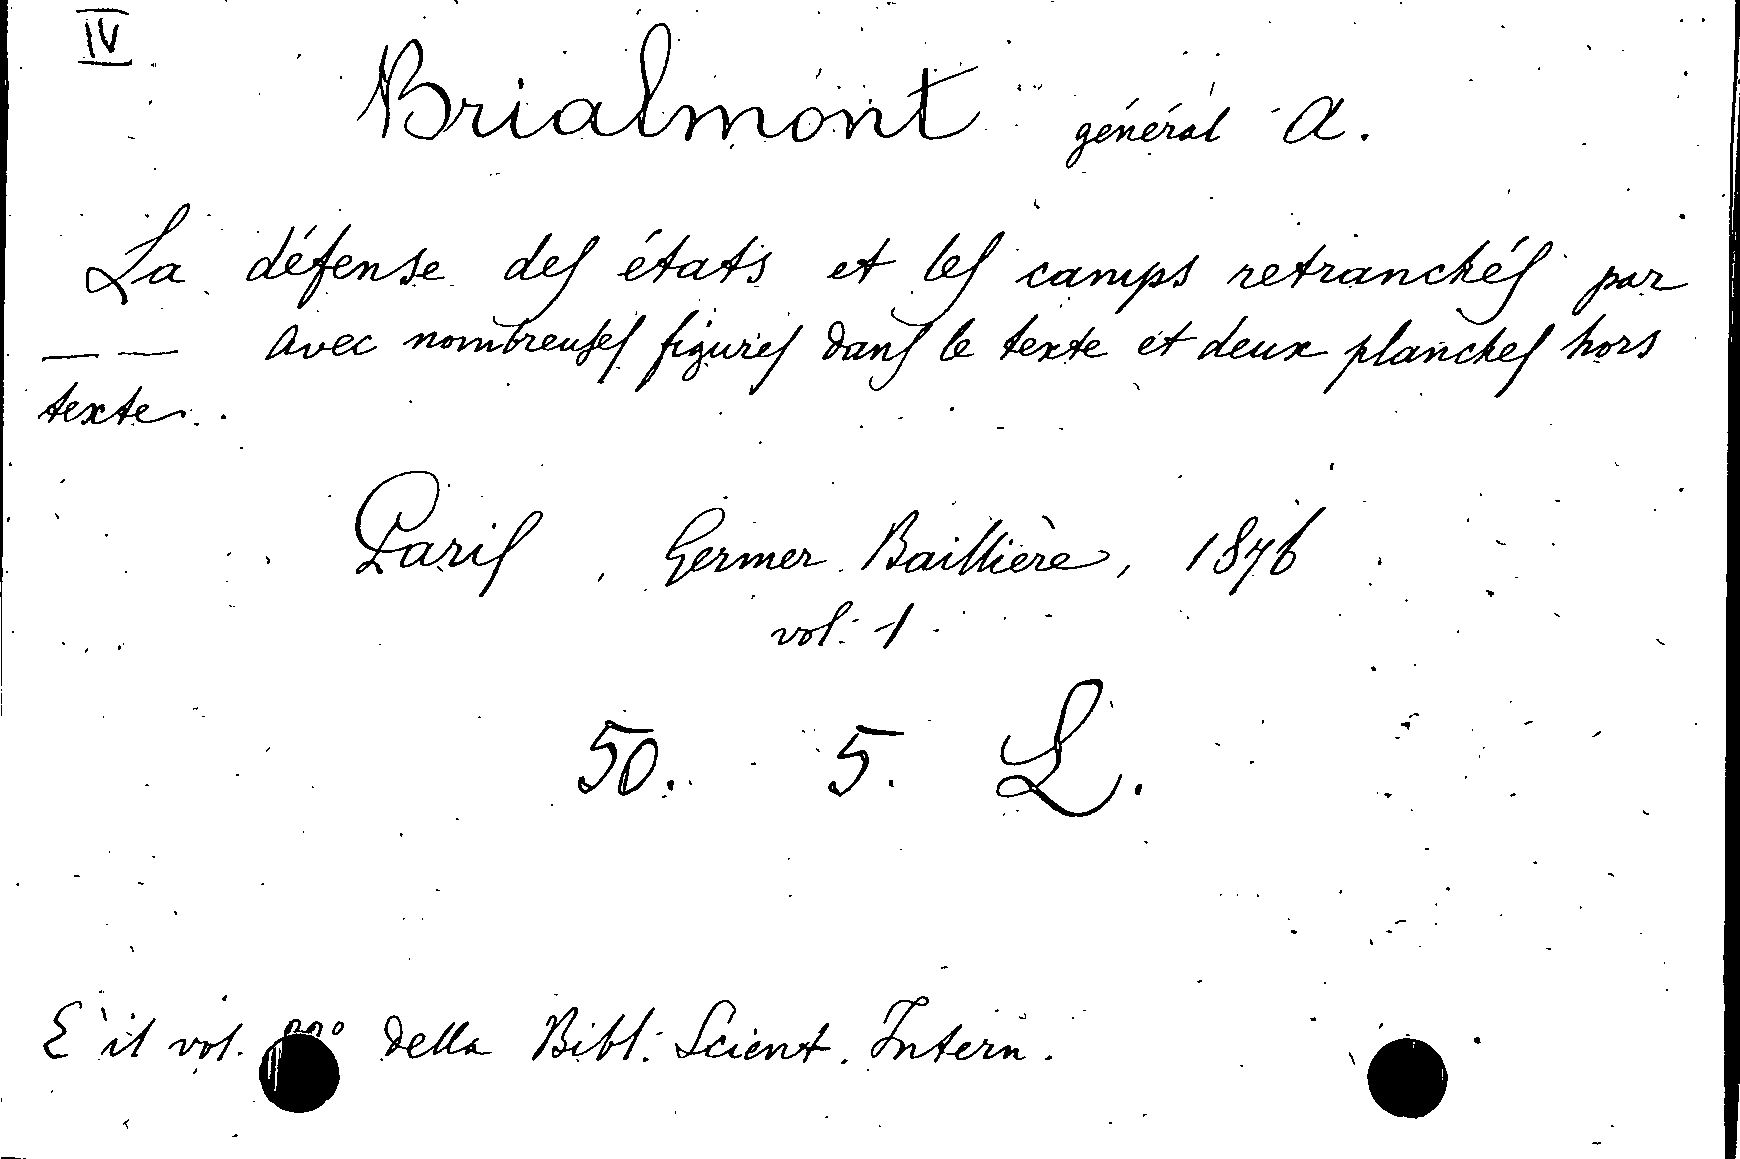 IV
Brialmont général A.
La défense des états et les camps retranchés par
— — avec nombreuses figures dans le texte et deux planches hors
texte.
Paris, Germer Baillière, 1876
vol. 1
50. 5. L.
E' il vol. della Bibl. Scient. Intern.